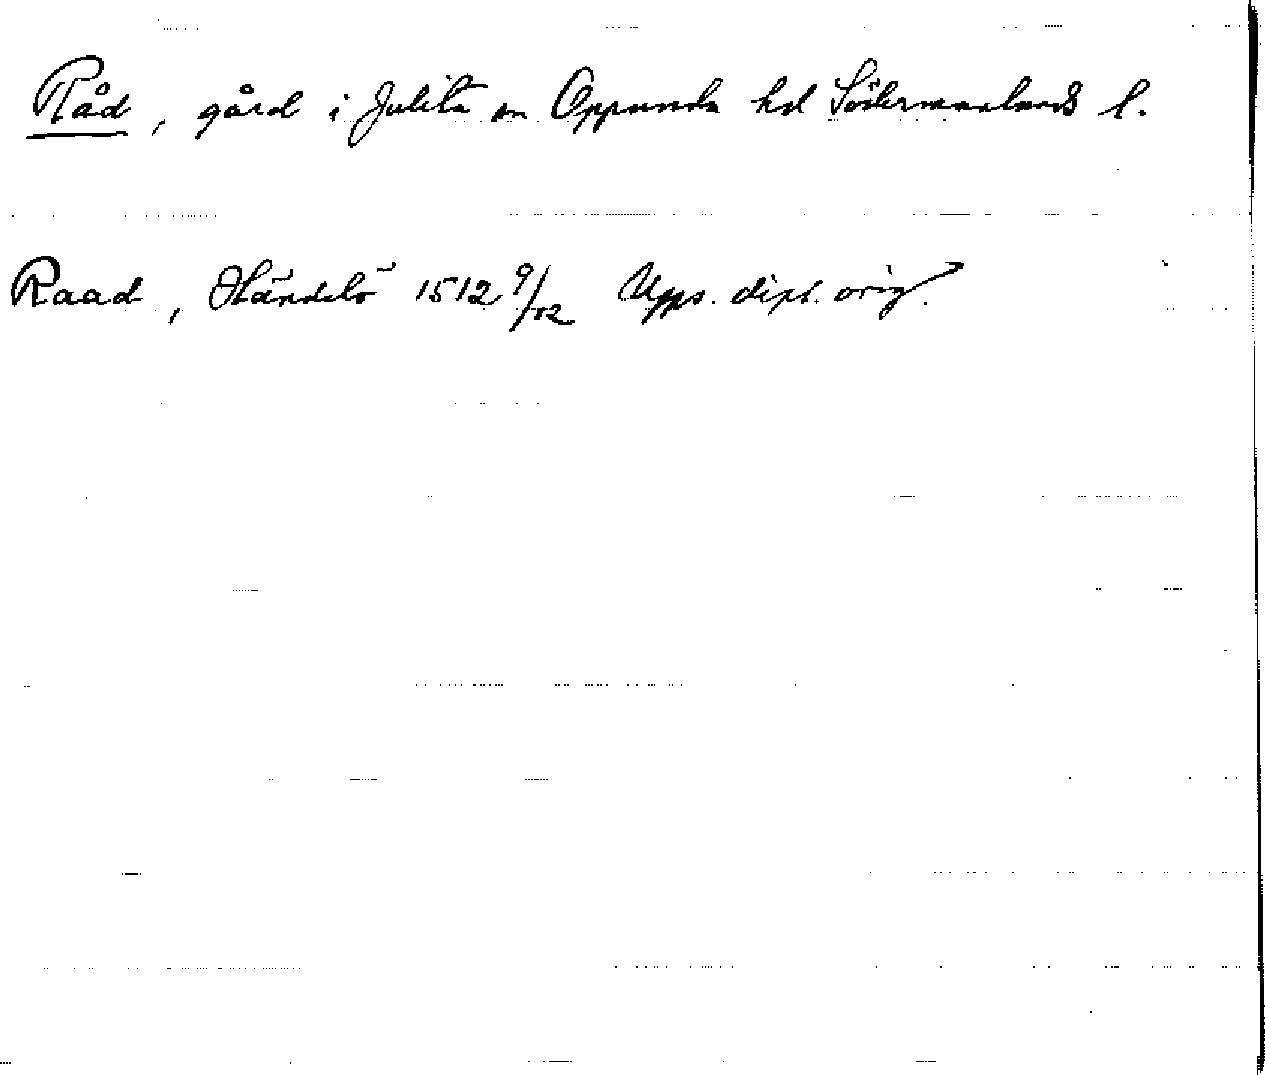 Råd, gård i Julita sn Oppunda hd Södermanlands l.
Raad, Händelö 1512 9/12 Upps. dipl. orig.